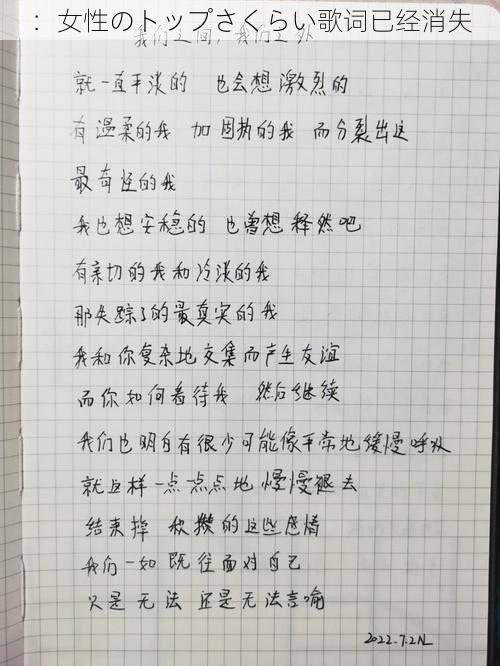 ：女性のトップさくらい歌词已经消失
我们之间，我们之外
就一直平淡的 也会想激烈的
有温柔的我 加固执的我 而分裂出这
最奇怪的我
我也想安稳的 也曾想释然吧
有亲切的我和冷淡的我
那失踪了的最真实的我
我和你复杂地交集而产生友谊
而你如何看待我 然后继续
我们也明白有很少可能像平常地缓慢呼吸
就这样一点点点地慢慢褪去
结束掉 的这些感情
我们一如既往面对自己
只是无法 还是无法言喻
2022.7.2